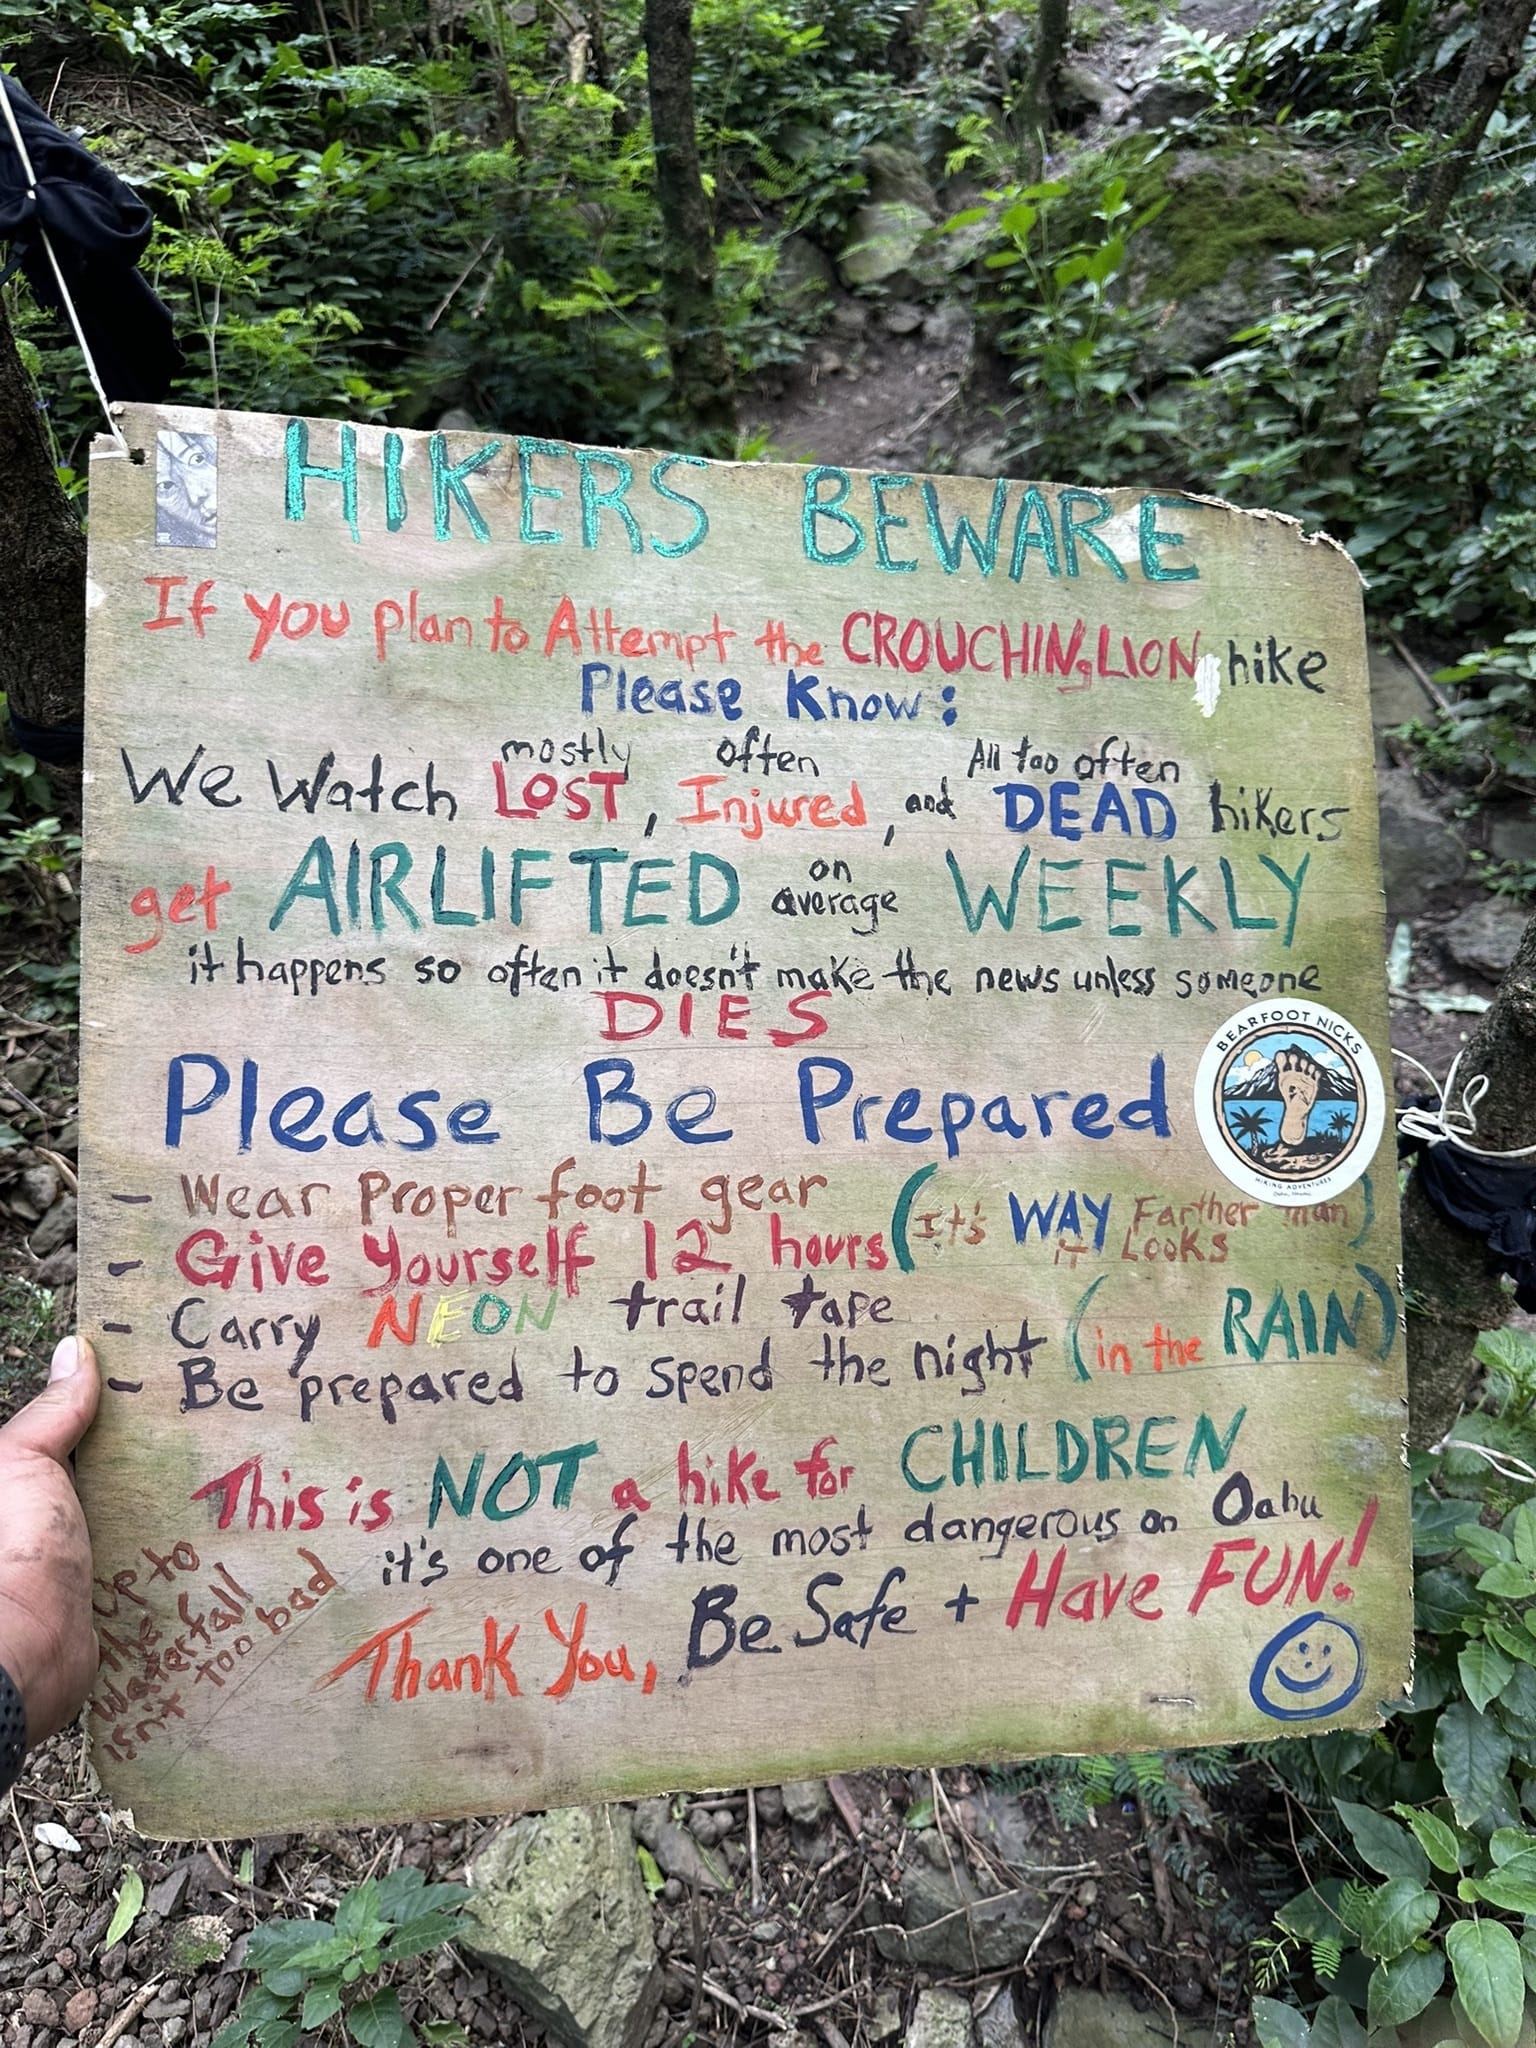 HIKERS BEWARE
If you plan to Attempt the CROUCHINgLION hike
Please Know:
mostly often All too often
We Watch LOST, Injured, and DEAD hikers
get AIRLIFTED on average WEEKLY
it happens so often it doesn't make the news unless someone
DIES
Please Be Prepared
- Wear Proper foot gear
- Give Yourself 12 hours (It's WAY Farther than it Looks)
- Carry NEON trail tape
- Be prepared to spend the night (in the RAIN)
This is NOT a hike for CHILDREN
it's one of the most dangerous on Oahu
Thank You, Be Safe + Have FUN!
Up to
the
Waterfall
isn't too bad
BEARFOOT NICKS
HIKING ADVENTURES
Oahu, Hawaii